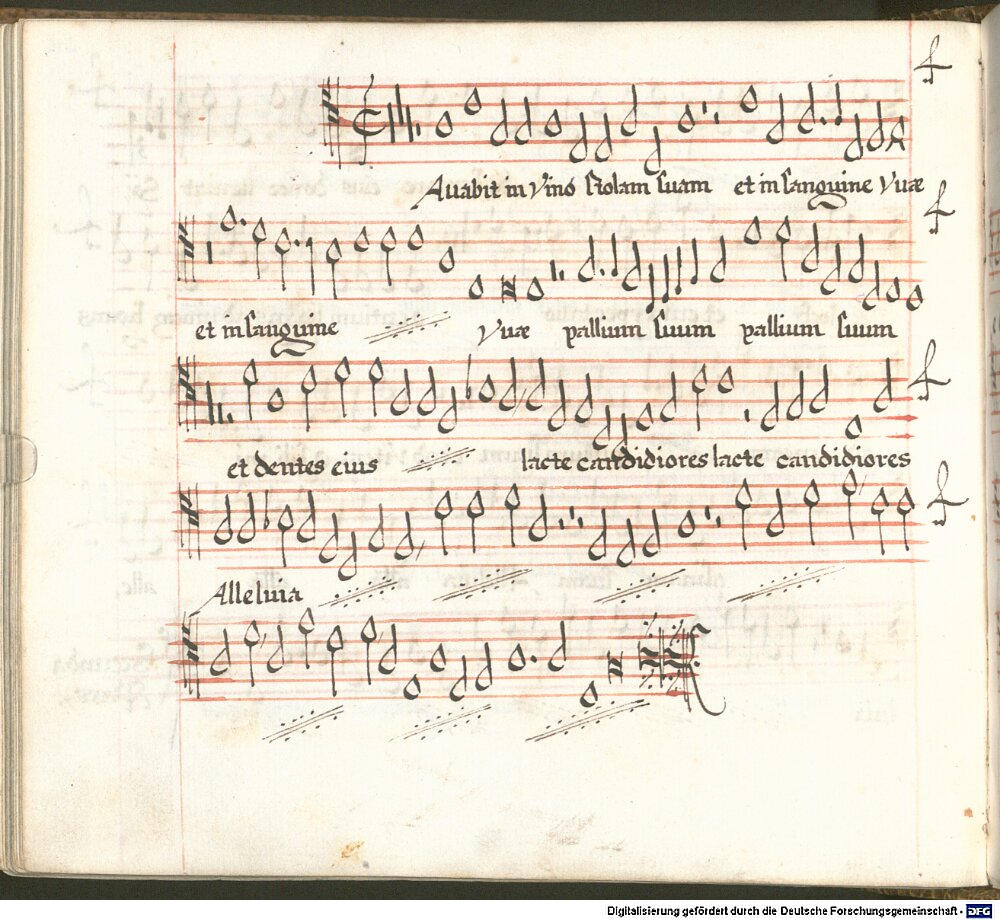 Avabit in Vino stolam suam et in sanguine Vuæ
et in sanguine Vuæ pallium suum pallium suum
et dentes eius lacte candidiores lacte candidiores
Alleluia
Digitalisierung gefördert durch die Deutsche Forschungsgemeinschaft - DFG